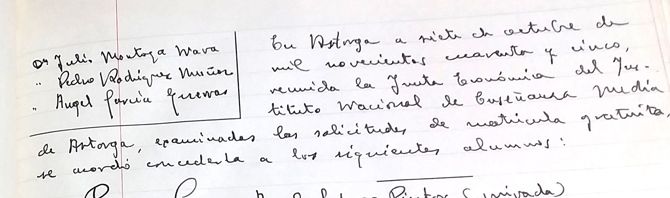 Dn Julio Montoya Nava
" Pedro Rodríguez Muñoz
" Angel García Guerras
En Astorga a siete de octubre de
mil novecientos cuarenta y cinco,
reunida la Junta Económica del Ins-
tituto Nacional de Enseñanza Media
de Astorga, examinadas las solicitudes de matrícula gratuita,
se acordó concederla a los siguientes alumnos:
(privada)